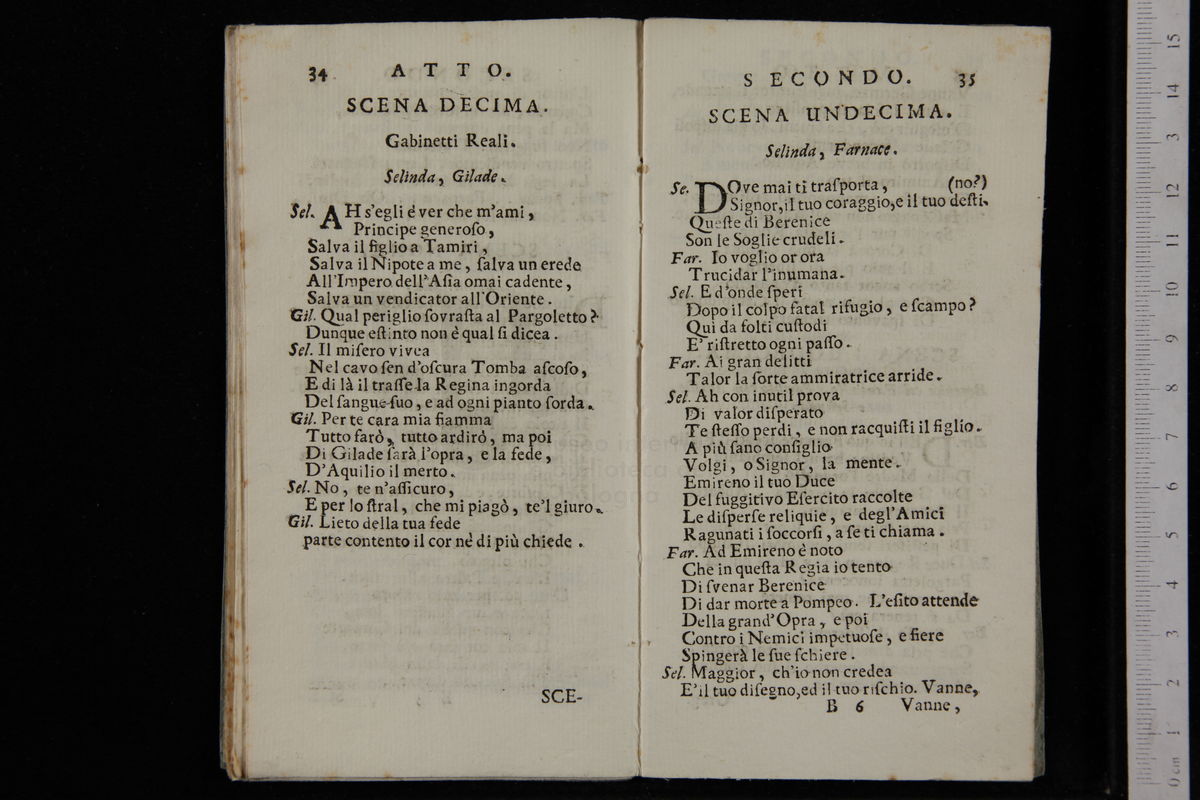 34 ATTO.
SCENA DECIMA.
Gabinetti Reali.
Selinda, Gilade.
Sel. AH s'egli é ver che m'ami,
Principe generoſo,
Salva il figlio a Tamiri,
Salva il Nipote a me, ſalva un erede
All'Impero dell'Aſia omai cadente,
Salva un vendicator all'Oriente.
Gil. Qual periglio ſovraſta al Pargoletto?
Dunque eſtinto non è qual ſi dicea.
Sel. Il miſero vivea
Nel cavo ſen d'oſcura Tomba aſcoſo,
E di là il traſſe la Regina ingorda
Del ſangue ſuo, e ad ogni pianto ſorda.
Gil. Per te cara mia fiamma
Tutto farò, tutto ardirò, ma poi
Di Gilade ſarà l'opra, e la fede,
D'Aquilio il merto.
Sel. No, te n'aſſicuro,
E per lo ſtral, che mi piagò, te'l giuro.
Gil. Lieto della tua fede
parte contento il cor né di più chiede.
SCE-
SECONDO. 35
SCENA UNDECIMA.
Selinda, Farnace.
Se. DOve mai ti traſporta, (no?)
Signor, il tuo coraggio, e il tuo deſti-
Queſte di Berenice
Son le Soglie crudeli.
Far. Io voglio or ora
Trucidar l'inumana.
Sel. E d'onde ſperi
Dopo il colpo fatal rifugio, e ſcampo?
Qui da folti cuſtodi
E' riſtretto ogni paſſo.
Far. Ai gran delitti
Talor la ſorte ammiratrice arride.
Sel. Ah con inutil prova
Di valor diſperato
Te ſteſſo perdi, e non racquiſti il figlio.
A più ſano conſiglio
Volgi, o Signor, la mente.
Emireno il tuo Duce
Del fuggitivo Eſercito raccolte
Le diſperſe reliquie, e degl'Amici
Ragunati i ſoccorſi, a ſe ti chiama.
Far. Ad Emireno è noto
Che in queſta Regia io tento
Di ſvenar Berenice
Di dar morte a Pompeo. L'eſito attende
Della grand'Opra, e poi
Contro i Nemici impetuoſe, e fiere
Spingerà le ſue ſchiere.
Sel. Maggior, ch'io non credea
E'il tuo diſegno, ed il tuo riſchio. Vanne,
B 6 Vanne,